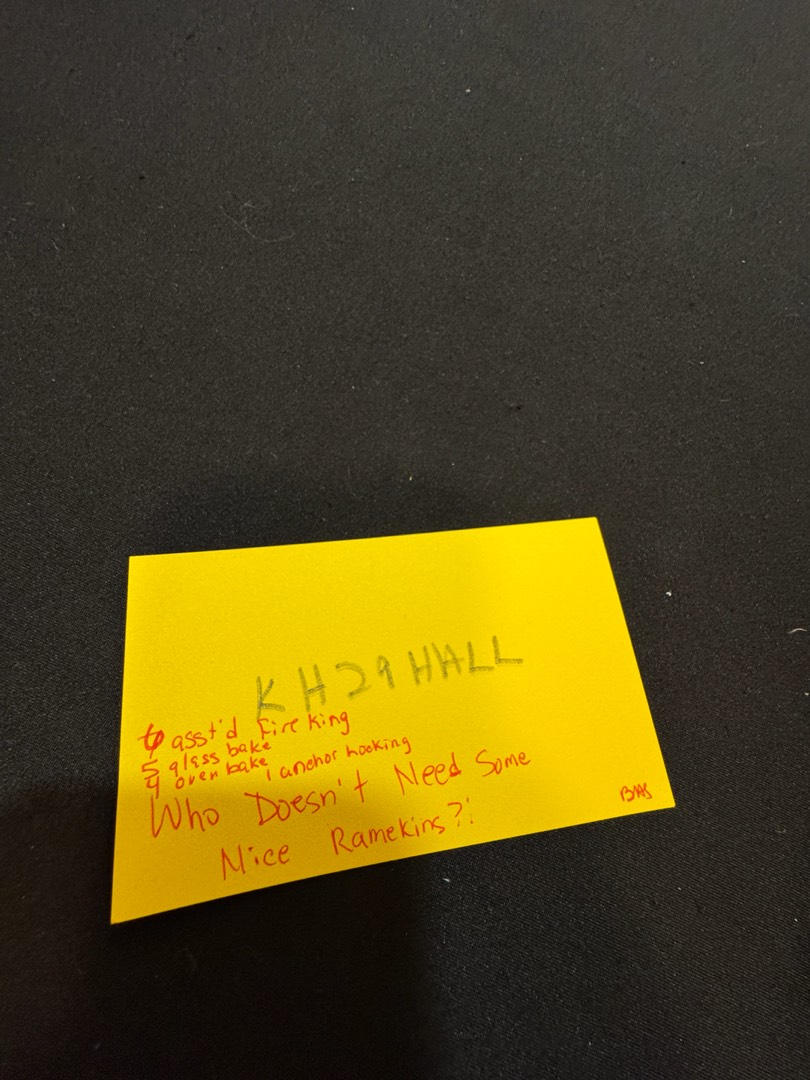 KH29HALL
6 asst'd Fire King
5 glass bake
4 oven bake 1 anchor hocking
Who Doesn't Need Some
Nice Ramekins?!